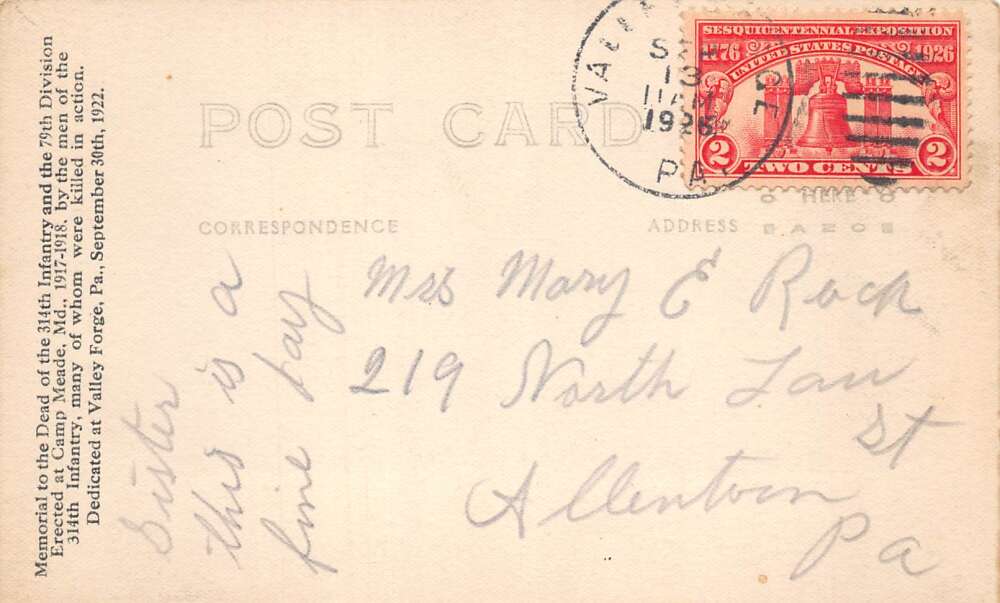 Memorial to the Dead of the 314th Infantry and the 79th Division
Erected at Camp Meade, Md., 1917-1918, by the men of the
314th Infantry, many of whom were killed in action.
Dedicated at Valley Forge, Pa., September 30th, 1922.
POST CARD
CORRESPONDENCE
ADDRESS
HERE
SESQUICENTENNIAL EXPOSITION
1776 1926
UNITED STATES POSTAGE
2 TWO CENTS 2
SEP
13
11 AM
1926
PA
Sister
this is a
fine
Mrs Mary E Rock
219 North Law
St
Allentown
Pa